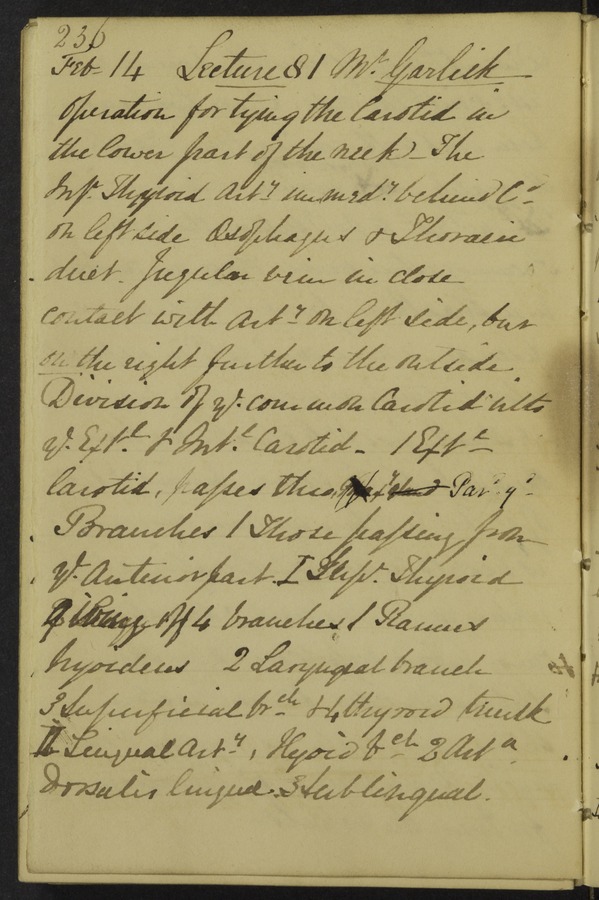 236
Feb 14 Lecture 81 Mr Garlick
operation for tying the Carotid in
the lower part of the neck - The
Infr. Thyroid Arty immedy behind Cd
on left side Oesophagus & Thoracic
duct. Jugular vein in close
contact with Arty on left side, but
on the right further to the outside
Division of ye. common Carotid into
ye. Extl. & Intl. Carotid - 1 Extl
Carotid, passes thro Par. gd
Branches 1 Those passing from
ye. Anterior part. I Supr. Thyroid
giving off 4 branches 1 Ramus
hyoideus 2 Laryngeal branch
3 Superficial brch & 4 thyroid trunk
II Lingual Arty, Hyoid bch 2 Arta
Dorsalis linguæ. 3 Sublingual.